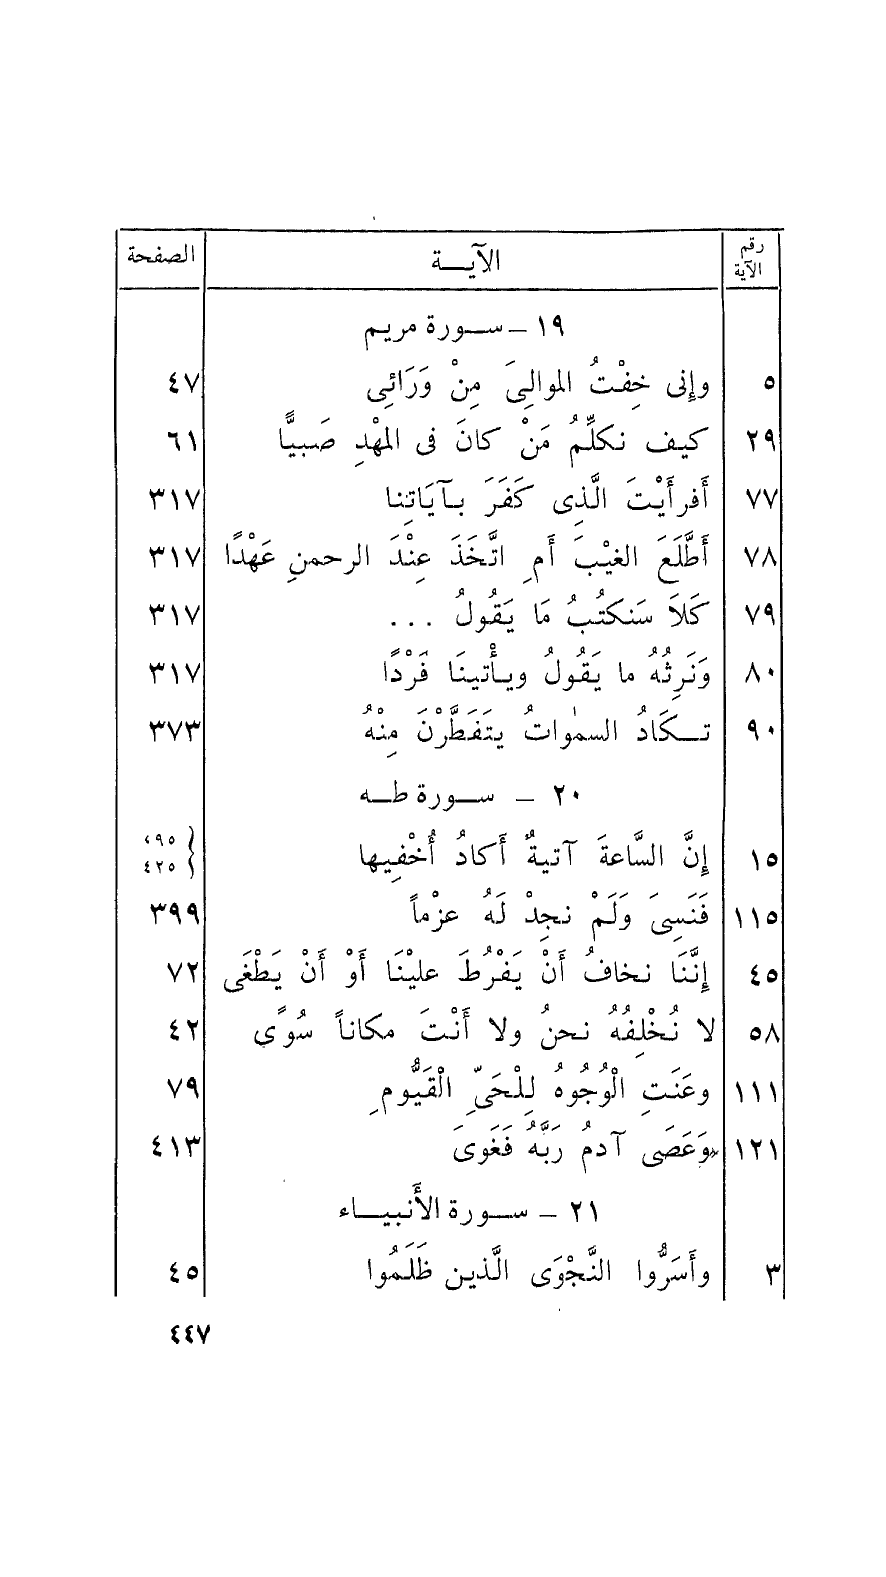 رقم الآية الآيـــة الصفحة
١٩ – ســورة مريم
٥ وإنى خِفْتُ الموالِىَ مِنْ وَرَائِى ٤٧
٢٩ كيف نكلِّمُ مَنْ كانَ فى المهْدِ صَبيًّا ٦١
٧٧ أَفرأَيْتَ الَّذِى كَفَرَ بـآيَاتِنا ٣١٧
٧٨ أَطَّلَعَ الغيْبَ أَمِ اتَّخَذَ عِنْدَ الرحمنِ عَهْدًا ٣١٧
٧٩ كَلاَ سَنكتُبُ مَا يَقُولُ ... ٣١٧
٨٠ وَنَرِثُهُ ما يَقُولُ ويـأْتينَا فَرْدًا ٣١٧
٩٠ تــكَادُ السمٰواتُ يتَفَطَّرْنَ مِنْهُ ٣٧٣
٢٠ – ســورة طــه
١٥ إِنَّ السَّاعةَ آتيةٌ أَكادُ أُخْفِيها { ٩٥، ٤٢٥ }
١١٥ فَنَسِىَ وَلَمْ نجِدْ لَهُ عزْماً ٣٩٩
٤٥ إِنَّنَا نخافُ أَنْ يَفْرُطَ عليْنَا أَوْ أَنْ يَطْغَى ٧٢
٥٨ لا نُخْلِفُهُ نحنُ ولا أَنْتَ مكاناً سُوًى ٤٢
١١١ وعَنَتِ الْوُجُوهُ لِلْحَىِّ الْقَيُّومِ ٧٩
١٢١ «وَعَصَى آدمُ رَبَّهُ فَغَوىَ ٤١٣
٢١ – ســورة الأَنبيــاء
٣ وأَسَرُّوا النَّجْوَى الَّذين ظَلَمُوا ٤٥
٤٤٧